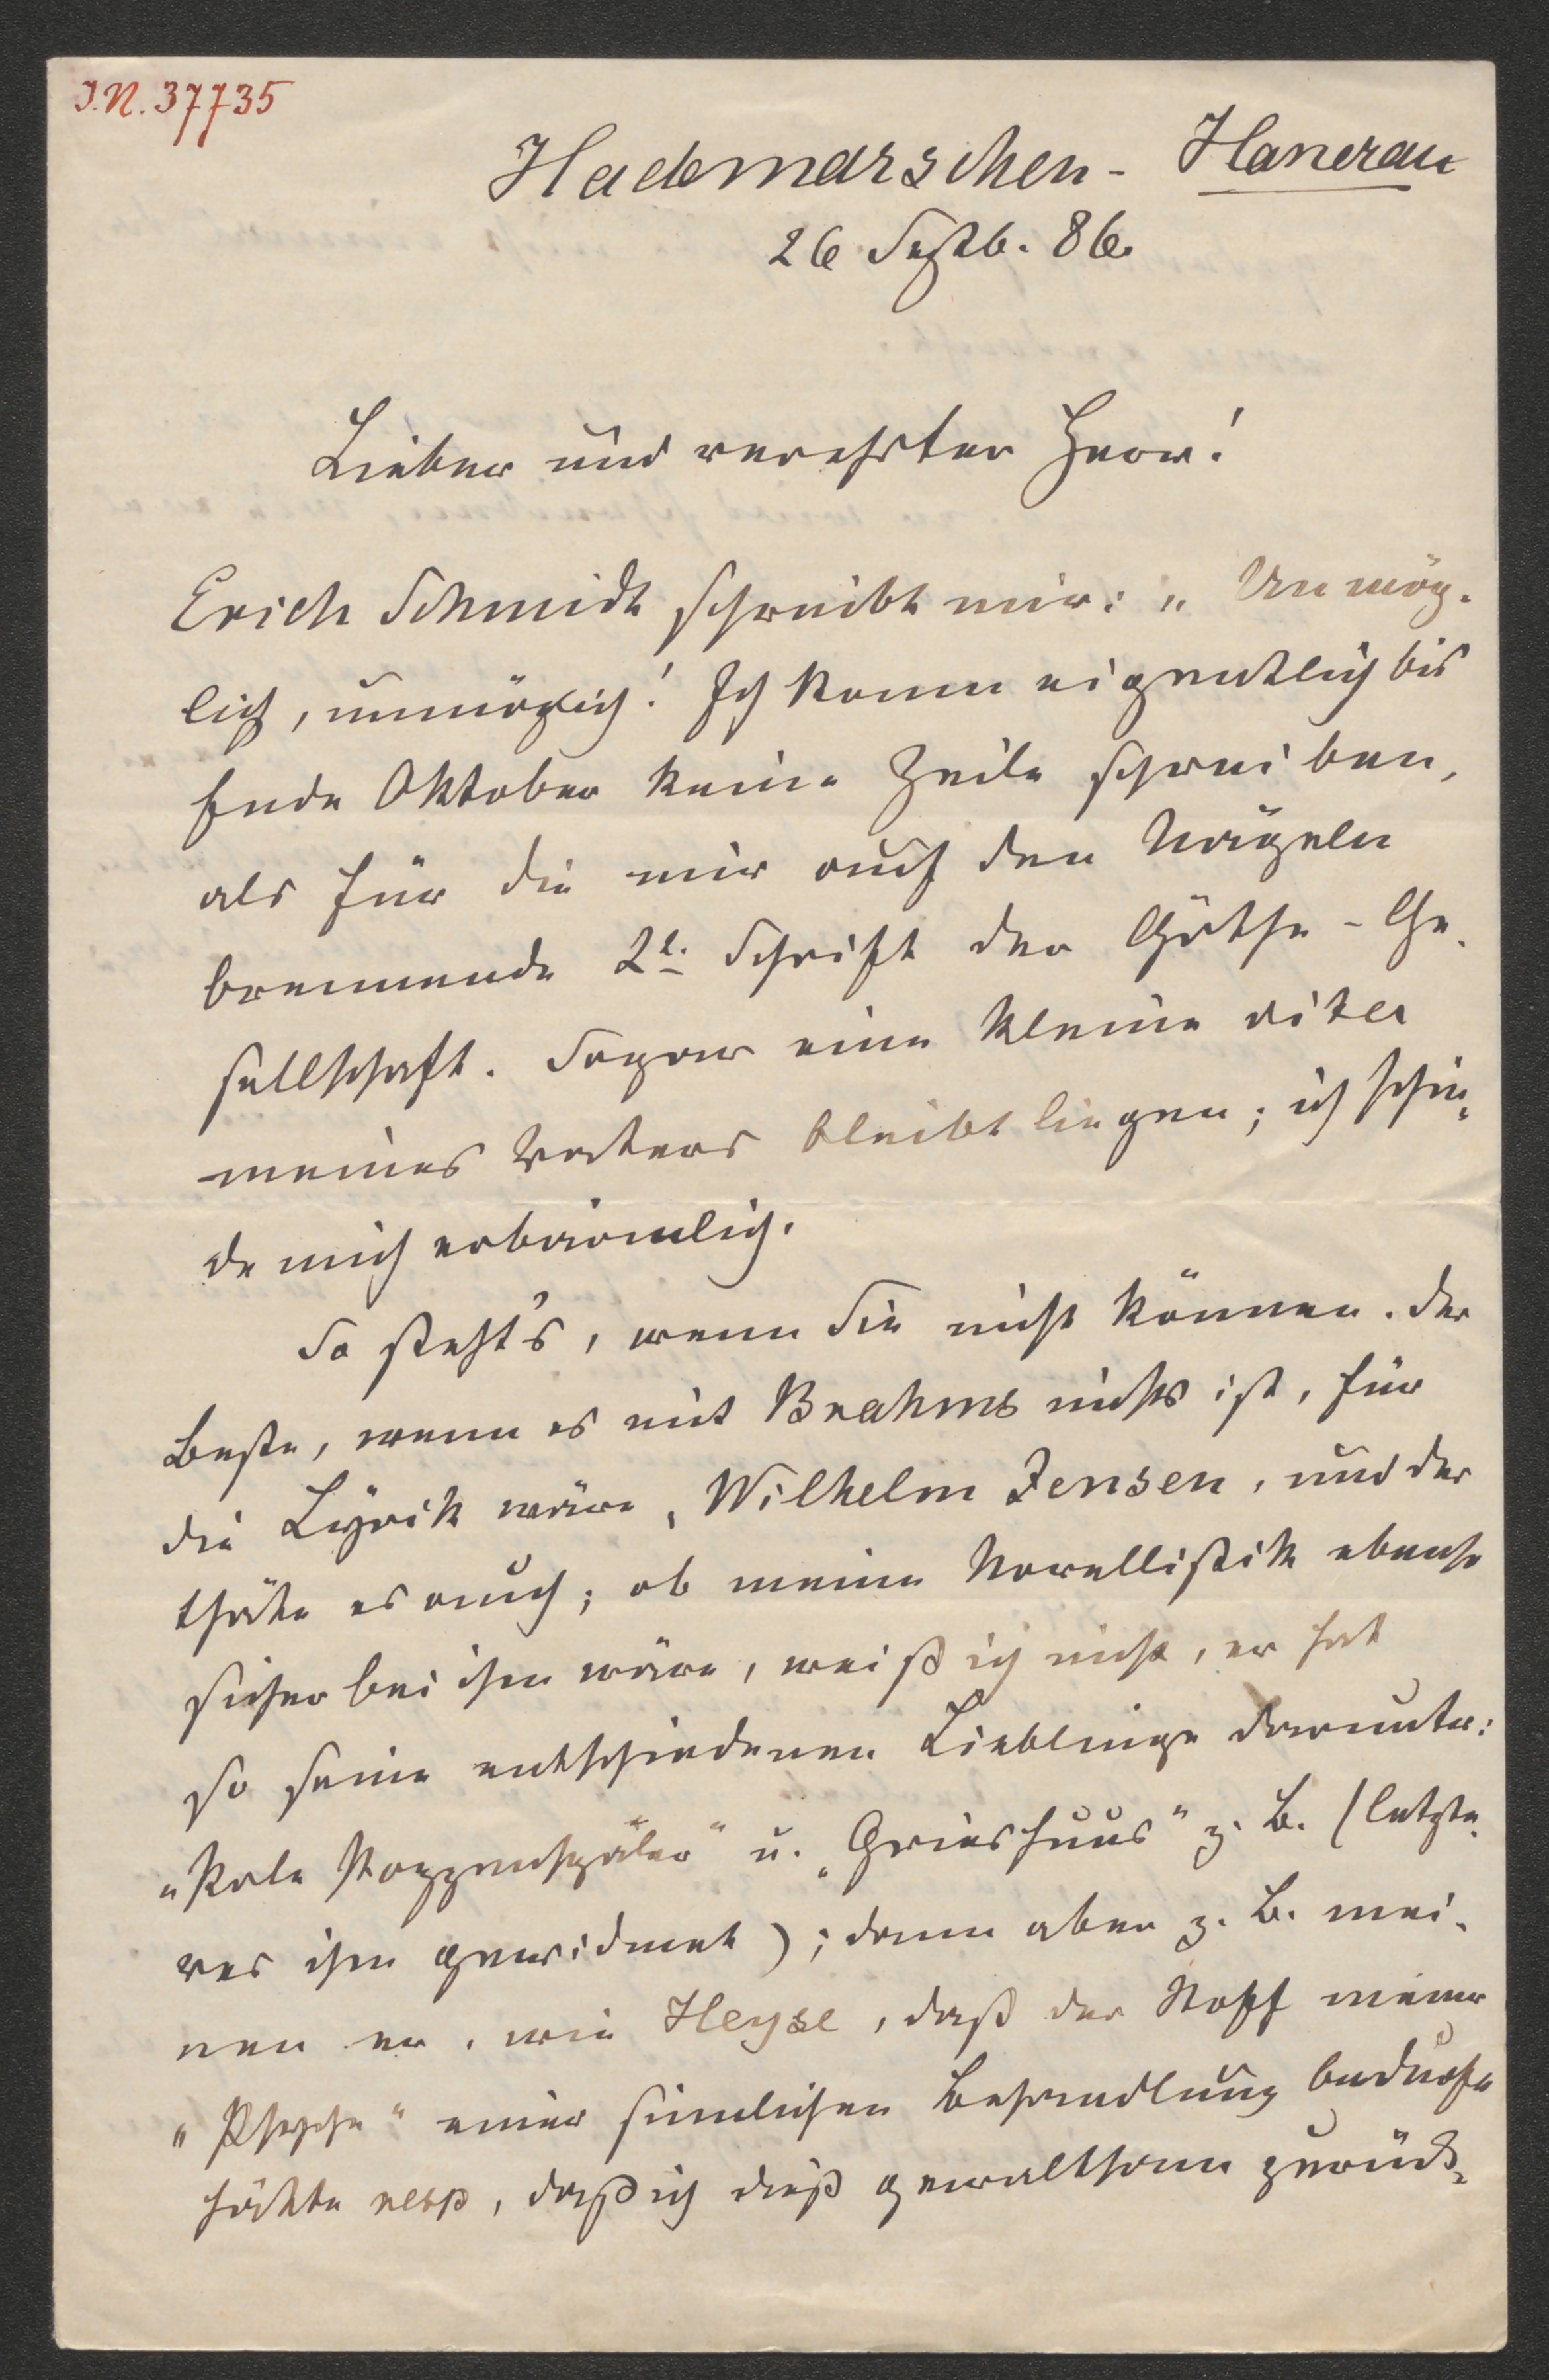 I.N. 37735
Hademarschen-Hanerau
26 Septb. 86.
Lieber und verehrter Herr!
Erich Schmidt schreibt mir: „Unmög-
lich, unmöglich! Ich kann eigentlich bis
Ende Oktober keine Zeile schreiben,
als für die mir auf den Nägeln
brennende 2t. Schrift der Göthe-Ge-
sellschaft. Sogar eine kleine vita
meines Vaters bleibt liegen; ich schin-
de mich erbärmlich.
So steht's, wenn Sie nicht können. Der
Beste, wenn es mit Brahms nichts ist, für
die Lyrik wäre, Wilhelm Jensen, und der
thäte es auch; ob meine Novellistik ebenso
sicher bei ihm wäre, weiß ich nicht, er hat
so seine entschiedenen Lieblinge darunter:
„Pole Poppenspäler“ u. „Grieshuus“ z. B. (letzte-
res ihm gewidmet); dann aber z. B. mei-
nen er, wie Heyse, daß der Stoff meiner
„Psyche“ einer sinnlichen Behandlung bedurft
hätte resp, daß ich dieß gewaltsam zurück-